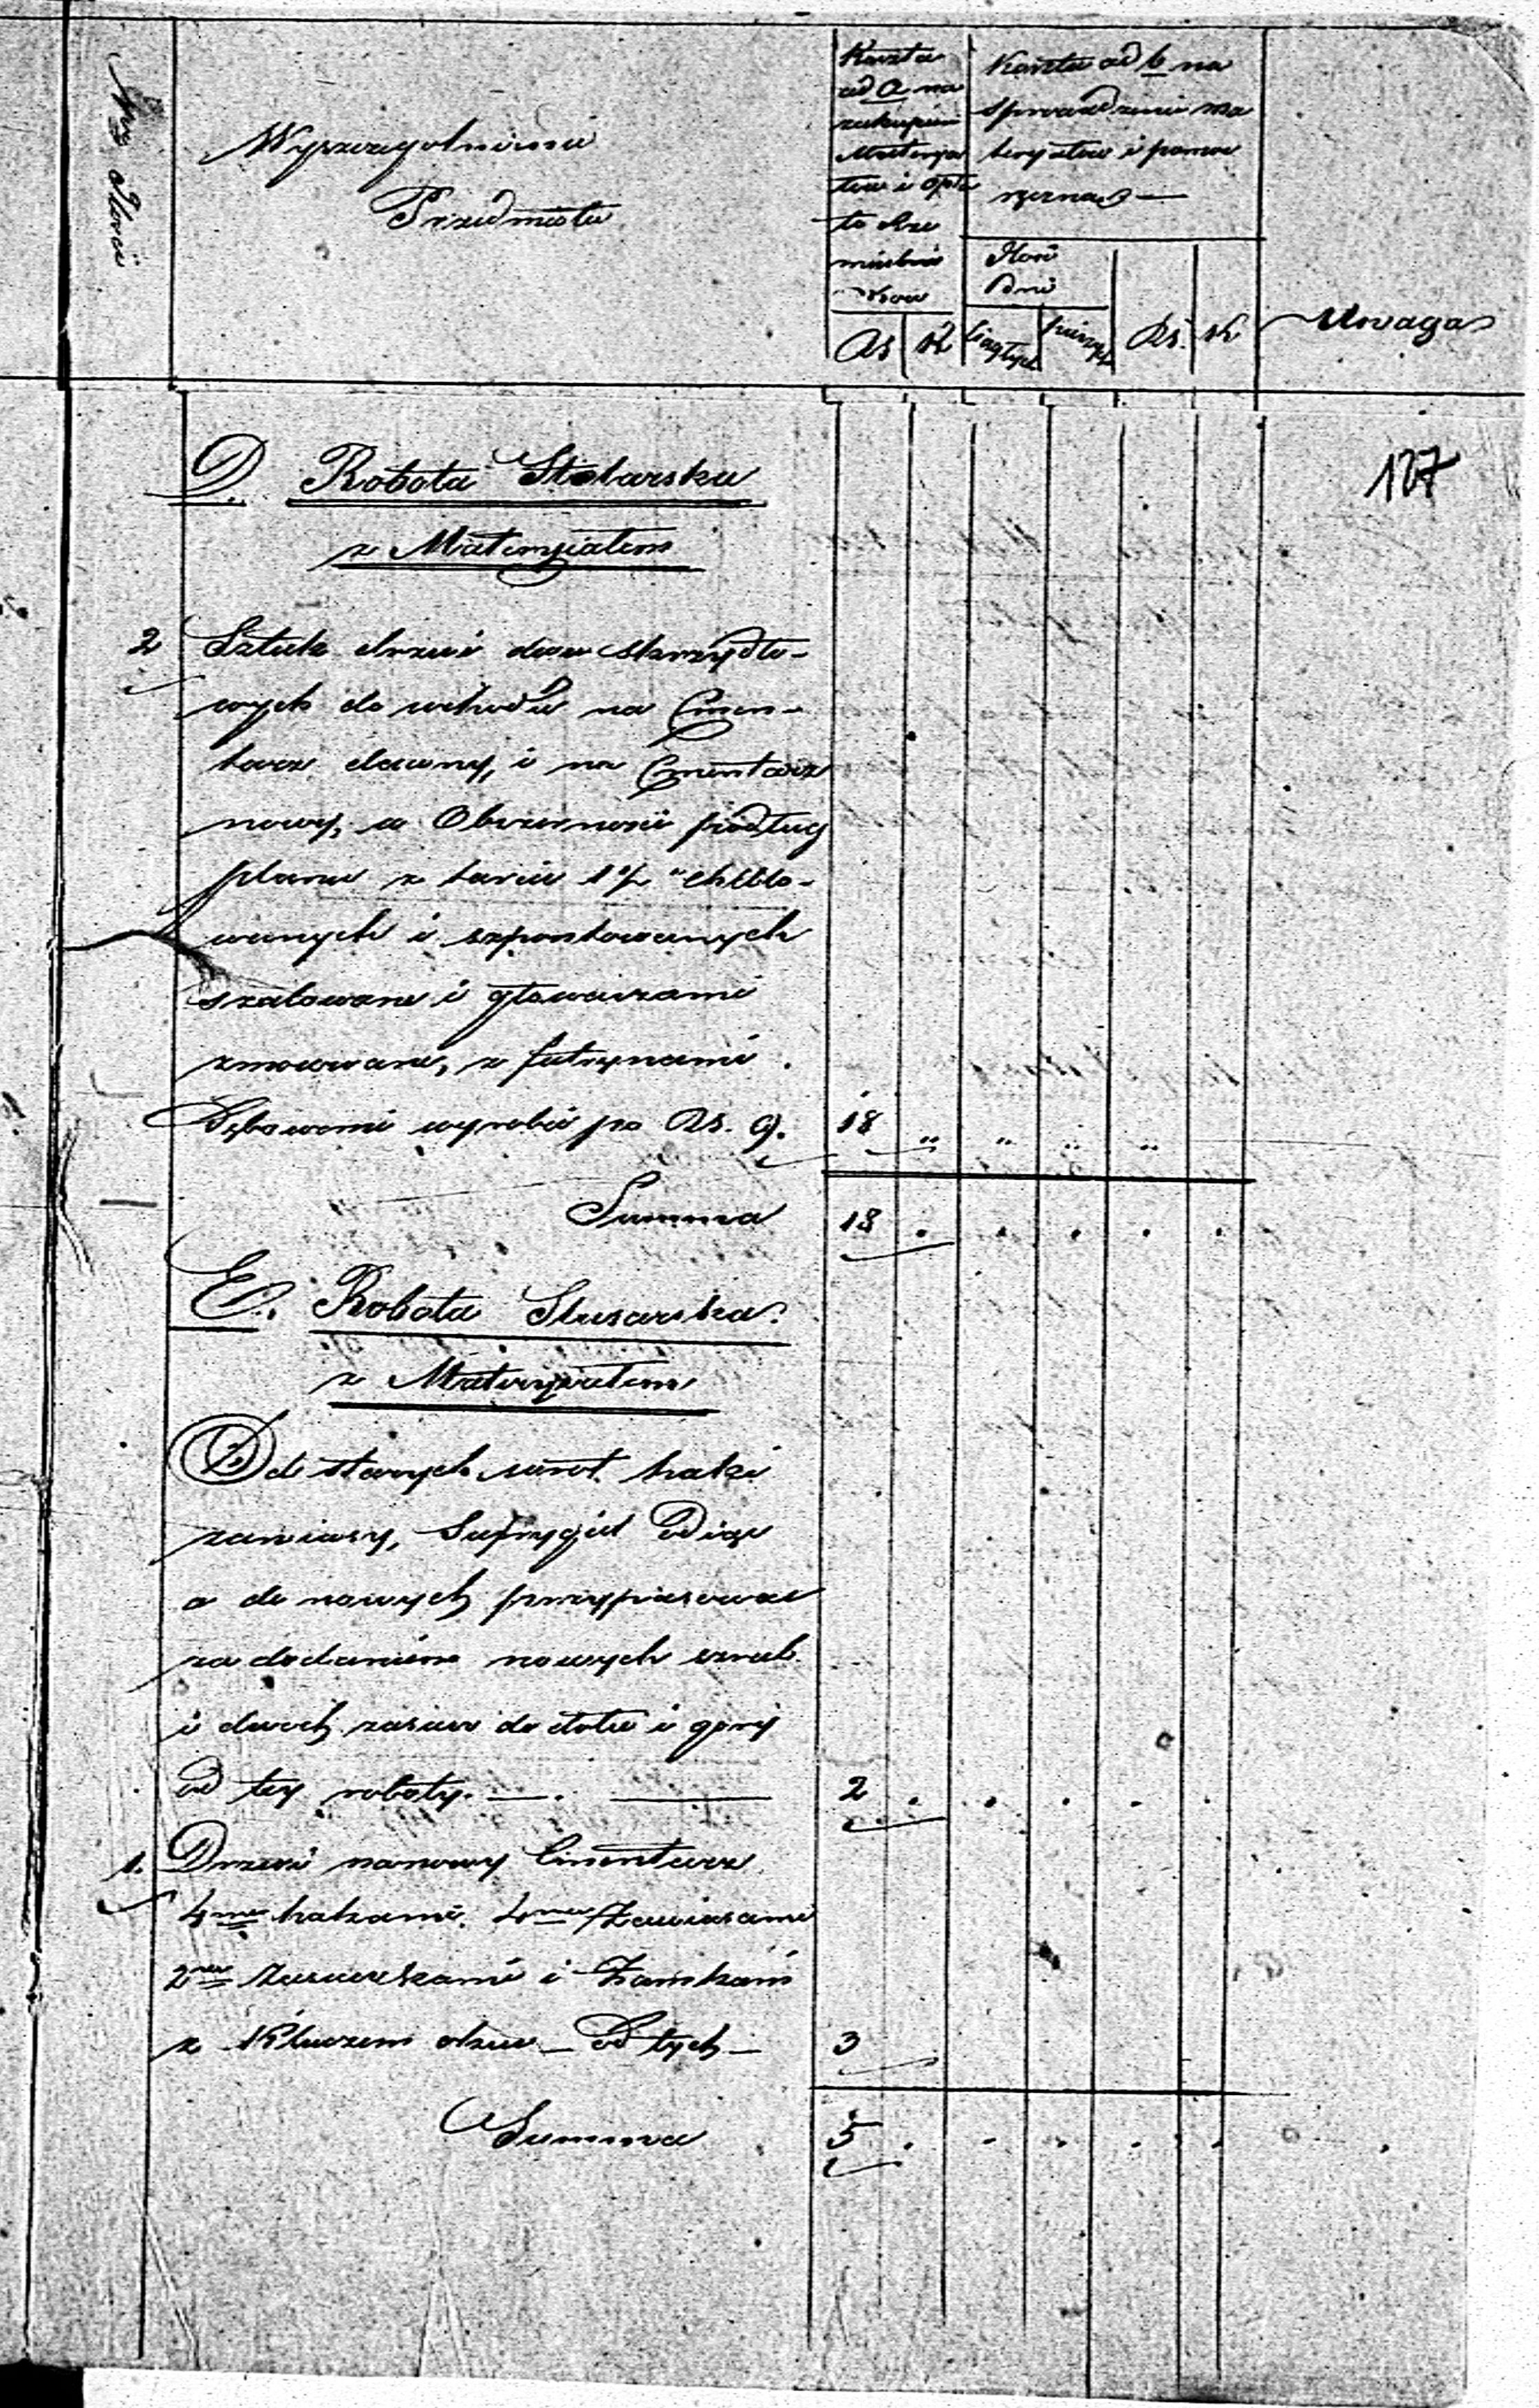 Ilość
Wyszczególnienie
Przedmiotu
Koszta
ad a na
zakupien
Materya
łów i opła
to Rze
mieślni
ków
Rs K
Koszta ad b na
sprowadzenie ma
teryałów i pomoc
ręczną
Ilość
Dni
ciągłych pieszych Rs. K
Uwaga
127
D. Robota Stolarska
z Materyiałem
2 Sztuk drzwi dwu skrzydło-
wych do wchodu na Cmen-
tarz dawny, i na Cmentarz
nowy, w Obszerności podług
planu z tarcic 1½" cheblo-
wanych i szpontowanych
szalowane i głowaczami
zmocowane, z futrynami
Dębowemi wyrobić po Rs. 9. 18 " " " "
Summa 18 . . . . .
E. Robota Slusarska.
z Materyiałem
Od starych wrot haki
zawiasy, Szpryngiel Odiąć
a do nowych przypasować
za dodaniem nowych szrub
i dwoch zasuw do dołu i góry
od tey roboty. — . — 2 . . . . .
1. Drzwi na nowy Cmentarz
4ma hakami, 4ma Zawiasami
2ma Zasuwkami i Zamkami
z Kluczem okuć — Od tych — 3
Summa 5 . . . . .